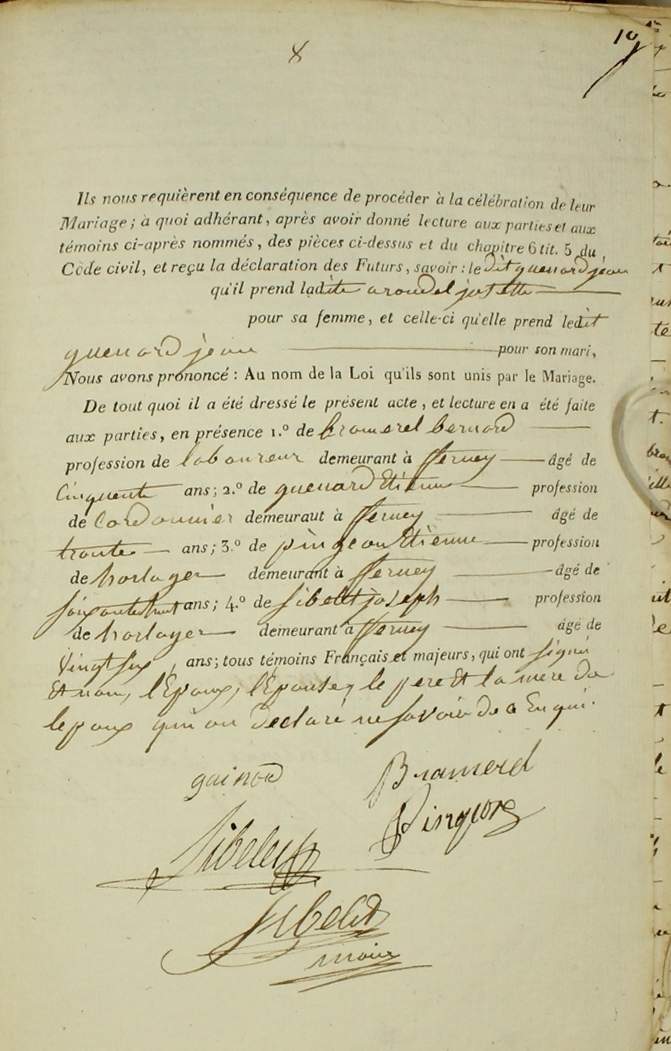 8
19
Ils nous requièrent en conséquence de procéder à la célébration de leur
Mariage; à quoi adhérant, après avoir donné lecture aux parties et aux
témoins ci-après nommés, des pièces ci-dessus et du chapitre 6 tit. 5 du
Côde civil, et reçu la déclaration des Futurs, savoir: le dit quenard jean
qu'il prend ladite arondel josette
pour sa femme, et celle-ci qu'elle prend ledit
quenard jean pour son mari,
Nous avons prononcé: Au nom de la Loi qu'ils sont unis par le Mariage.
De tout quoi il a été dressé le présent acte, et lecture en a été faite
aux parties, en présence 1.º de bramerel bernard
profession de laboureur demeurant à fferney âgé de
Cinquente ans; 2.º de quenard Etienne profession
de Cordonnier demeuraut à fferney âgé de
trente ans; 3.º de pingeon Etienne profession
de horloger demeurant à fferney âgé de
soixantehuit ans; 4.º de sibelit joseph profession
de horloger demeurant à fferney âgé de
Vingt six ans; tous témoins Français et majeurs, qui ont signé
Et non, l'Epoux, l'Epouse, le pere Et la mere de
lepoux qui on declaré ne savoir de a Enqui.
guinod
Bramerel
Pingeon
Sibelit
Sibelit
maire